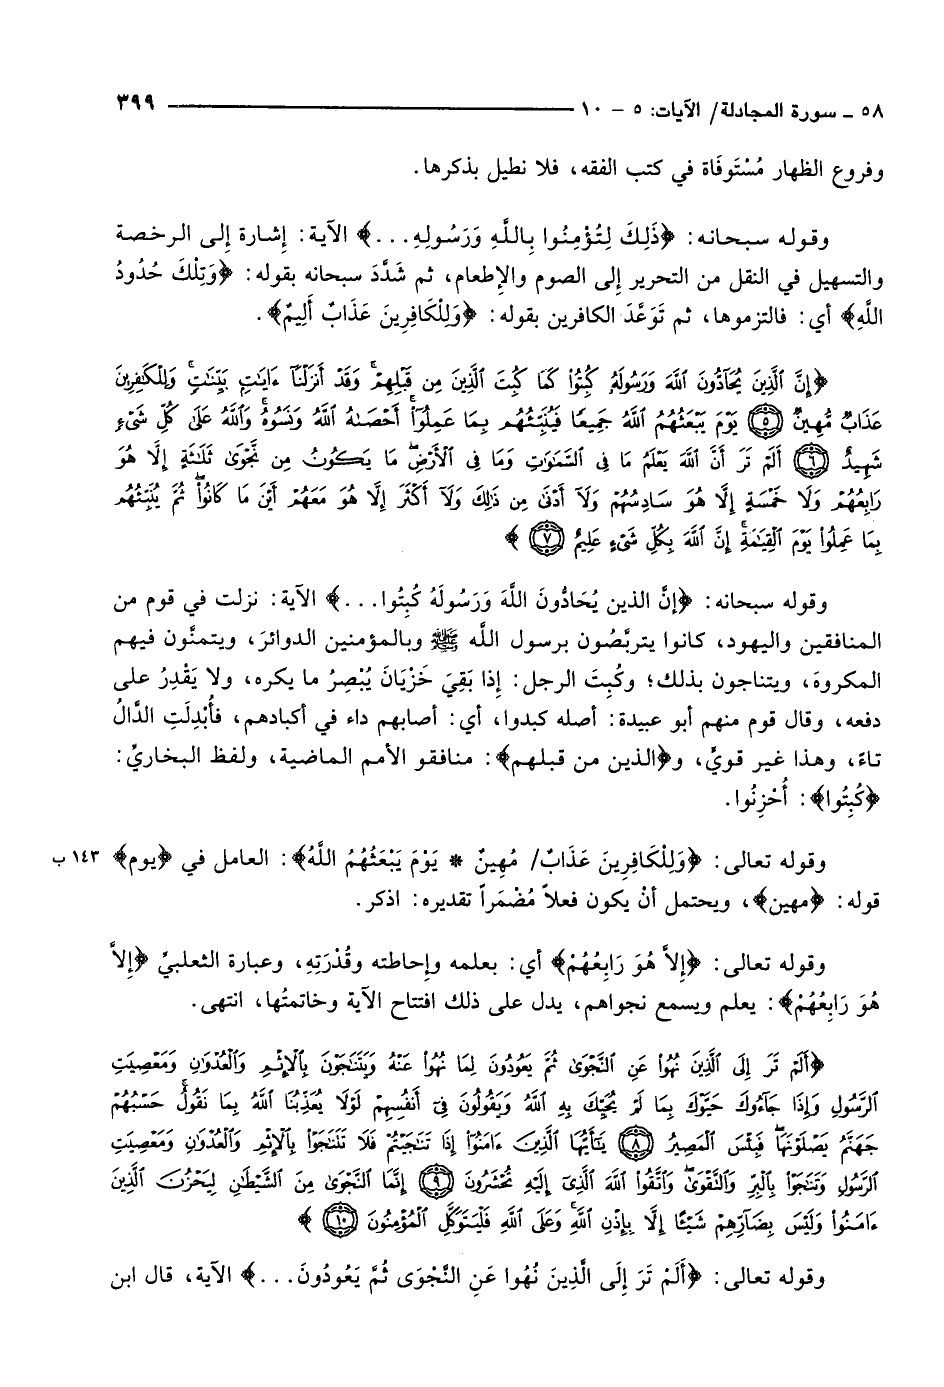 ٥٨ ـ سورة المجادلة/ الآيات: ٥ - ١٠ ٣٩٩
وفروع الظهار مُسْتَوفَاة في كتب الفقه، فلا نطيل بذكرها.
وقوله سبحانه: ﴿ذَلِكَ لِتُؤْمِنُوا بِاللَّهِ وَرَسُولِهِ...﴾ الآية: إشارة إلى الرخصة
والتسهيل في النقل من التحرير إلى الصوم والإطعام، ثم شَدَّدَ سبحانه بقوله: ﴿وَتِلْكَ حُدُودُ
اللَّهِ﴾ أي: فالتزموها، ثم تَوَعَّدَ الكافرين بقوله: ﴿وَلِلْكَافِرِينَ عَذَابٌ أَلِيمٌ﴾.
﴿إِنَّ ٱلَّذِينَ يُحَآدُّونَ ٱللَّهَ وَرَسُولَهُۥ كُبِتُوا۟ كَمَا كُبِتَ ٱلَّذِينَ مِن قَبْلِهِمْ ۚ وَقَدْ أَنزَلْنَآ ءَايَٰتٍۭ بَيِّنَٰتٍ ۚ وَلِلْكَٰفِرِينَ
عَذَابٌ مُّهِينٌ ﴿٥﴾ يَوْمَ يَبْعَثُهُمُ ٱللَّهُ جَمِيعًا فَيُنَبِّئُهُم بِمَا عَمِلُوٓا۟ ۚ أَحْصَىٰهُ ٱللَّهُ وَنَسُوهُ ۚ وَٱللَّهُ عَلَىٰ كُلِّ شَىْءٍ
شَهِيدٌ ﴿٦﴾ أَلَمْ تَرَ أَنَّ ٱللَّهَ يَعْلَمُ مَا فِى ٱلسَّمَٰوَٰتِ وَمَا فِى ٱلْأَرْضِ ۖ مَا يَكُونُ مِن نَّجْوَىٰ ثَلَٰثَةٍ إِلَّا هُوَ
رَابِعُهُمْ وَلَا خَمْسَةٍ إِلَّا هُوَ سَادِسُهُمْ وَلَآ أَدْنَىٰ مِن ذَٰلِكَ وَلَآ أَكْثَرَ إِلَّا هُوَ مَعَهُمْ أَيْنَ مَا كَانُوا۟ ۖ ثُمَّ يُنَبِّئُهُم
بِمَا عَمِلُوا۟ يَوْمَ ٱلْقِيَٰمَةِ ۚ إِنَّ ٱللَّهَ بِكُلِّ شَىْءٍ عَلِيمٌ ﴿٧﴾ ﴾
وقوله سبحانه: ﴿إنَّ الذين يُحَادُّونَ اللَّهَ وَرَسُولَهُ كُبِتُوا...﴾ الآية: نزلت في قوم من
المنافقين واليهود، كانوا يتربَّصُون برسول اللَّه ﷺ وبالمؤمنين الدوائرَ، ويتمنَّون فيهم
المكروهَ، ويتناجون بذلك؛ وكُبِتَ الرجل: إذا بَقِيَ خَزْيَانَ يُبْصِرُ ما يكره، ولا يَقْدِرُ على
دفعه، وقال قوم منهم أبو عبيدة: أصله كبدوا، أي: أصابهم داء في أكبادهم، فأُبْدِلَتِ الدَّالُ
تاءً، وهذا غير قويٍّ، و﴿الذين من قبلهم﴾: منافقو الأمم الماضية، ولفظ البخاريِّ:
﴿كُبِتُوا﴾: أُحْزِنُوا.
وقوله تعالى: ﴿وَلِلْكَافِرِينَ عَذَابٌ/ مُهِينٌ * يَوْمَ يَبْعَثُهُمُ اللَّهُ﴾: العامل في ﴿يوم﴾ ١٤٣ ب
قوله: ﴿مهين﴾، ويحتمل أنْ يكون فعلاً مُضْمَراً تقديره: اذكر.
وقوله تعالى: ﴿إلاَّ هُوَ رَابِعُهُمْ﴾ أي: بعلمه وإحاطته وقُدْرَتِهِ، وعبارة الثعلبيِّ ﴿إلاَّ
هُوَ رَابِعُهُمْ﴾: يعلم ويسمع نجواهم، يدل على ذلك افتتاح الآية وخاتمتُها، انتهى.
﴿أَلَمْ تَرَ إِلَى ٱلَّذِينَ نُهُوا۟ عَنِ ٱلنَّجْوَىٰ ثُمَّ يَعُودُونَ لِمَا نُهُوا۟ عَنْهُ وَيَتَنَٰجَوْنَ بِٱلْإِثْمِ وَٱلْعُدْوَٰنِ وَمَعْصِيَتِ
ٱلرَّسُولِ وَإِذَا جَآءُوكَ حَيَّوْكَ بِمَا لَمْ يُحَيِّكَ بِهِ ٱللَّهُ وَيَقُولُونَ فِىٓ أَنفُسِهِمْ لَوْلَا يُعَذِّبُنَا ٱللَّهُ بِمَا نَقُولُ ۚ حَسْبُهُمْ
جَهَنَّمُ يَصْلَوْنَهَا ۖ فَبِئْسَ ٱلْمَصِيرُ ﴿٨﴾ يَٰٓأَيُّهَا ٱلَّذِينَ ءَامَنُوٓا۟ إِذَا تَنَٰجَيْتُمْ فَلَا تَتَنَٰجَوْا۟ بِٱلْإِثْمِ وَٱلْعُدْوَٰنِ وَمَعْصِيَتِ
ٱلرَّسُولِ وَتَنَٰجَوْا۟ بِٱلْبِرِّ وَٱلتَّقْوَىٰ ۖ وَٱتَّقُوا۟ ٱللَّهَ ٱلَّذِىٓ إِلَيْهِ تُحْشَرُونَ ﴿٩﴾ إِنَّمَا ٱلنَّجْوَىٰ مِنَ ٱلشَّيْطَٰنِ لِيَحْزُنَ ٱلَّذِينَ
ءَامَنُوا۟ وَلَيْسَ بِضَآرِّهِمْ شَيْـًٔا إِلَّا بِإِذْنِ ٱللَّهِ ۚ وَعَلَى ٱللَّهِ فَلْيَتَوَكَّلِ ٱلْمُؤْمِنُونَ ﴿١٠﴾ ﴾
وقوله تعالى: ﴿أَلَمْ تَرَ إِلَى الَّذِينَ نُهُوا عَنِ النَّجْوَى ثُمَّ يَعُودُونَ...﴾ الآية، قال ابن